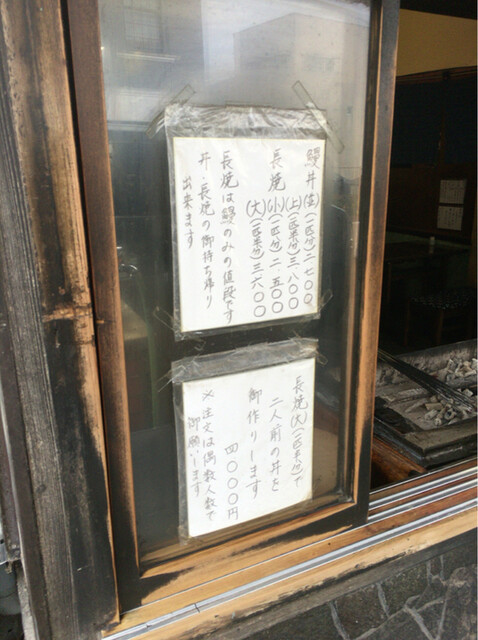 鰻丼(並)(一匹分)二七〇〇
(上)(一匹半分)三八〇〇
長焼(小)(一匹分)二五〇〇
(大)(一匹半分)三六〇〇
長焼は鰻のみの値段です
丼・長焼の御持ち帰り
出来ます
長焼(大)(一匹半分)で
二人前の丼を
御作りします
四〇〇〇円
※注文は偶数人数で
御願いします